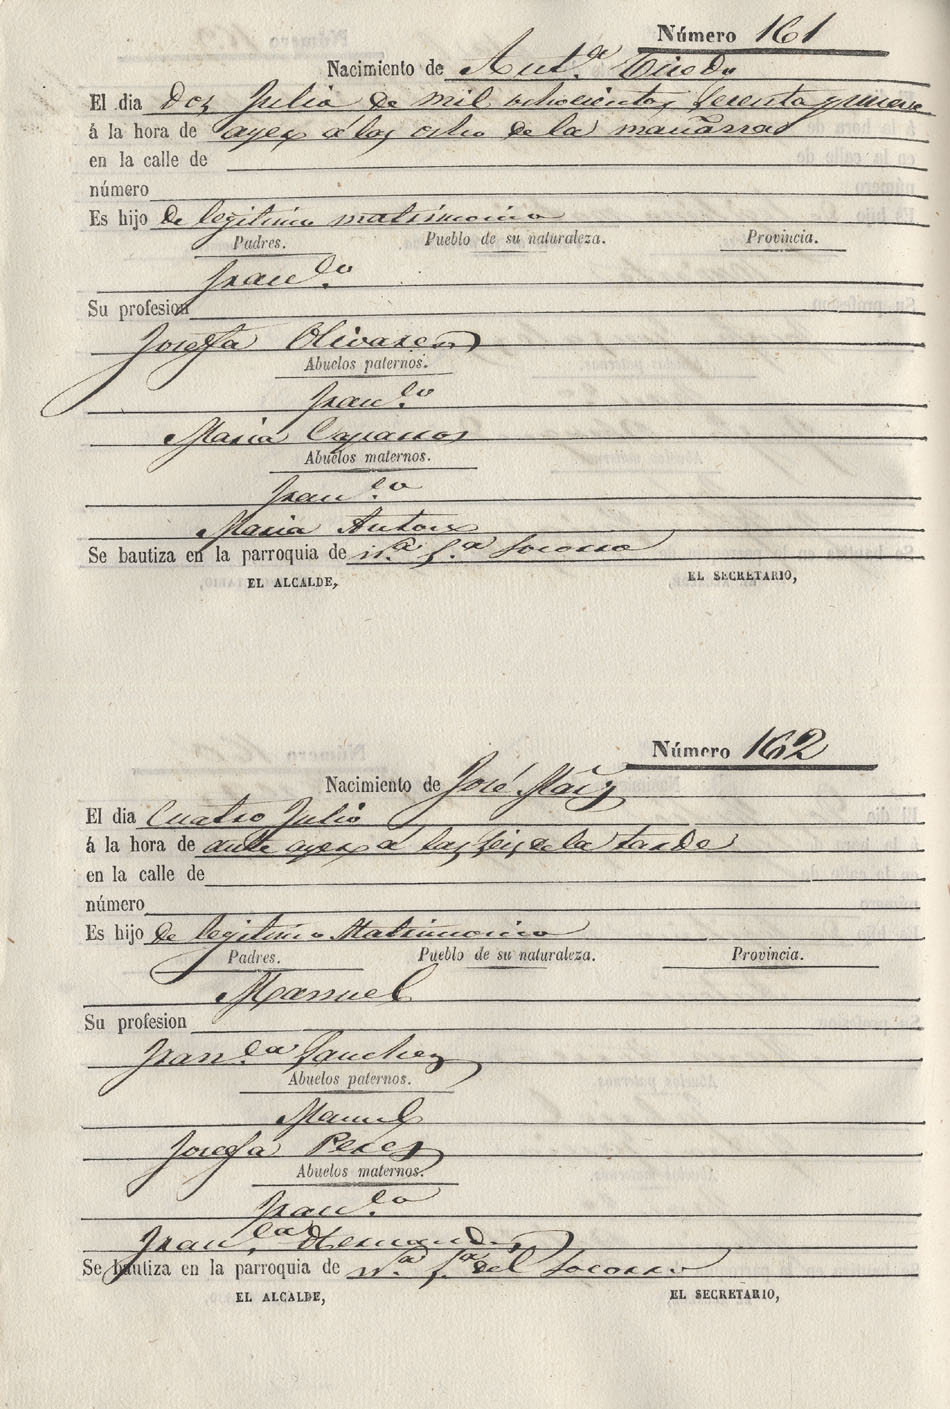 Número 161
Nacimiento de Ant.ª
El dia dos Julio de mil ochocientos sesenta y nueve
á la hora de ayer á las ocho de la mañana
en la calle de
número
Es hijo de legitimo matrimonio
Padres. Pueblo de su naturaleza. Provincia.
Fran.co
Su profesion
Josefa Olivares
Abuelos paternos.
Fran.co
Maria Caparros
Abuelos maternos.
Fran.co
Maria Anton
Se bautiza en la parroquia de N.ª S.ª Socorro
EL ALCALDE, EL SECRETARIO,
Número 162
Nacimiento de José
El dia Cuatro Julio
á la hora de ante ayer á las seis de la tarde
en la calle de
número
Es hijo de legitimo Matrimonio
Padres. Pueblo de su naturaleza. Provincia.
Manuel
Su profesion
Fran.ca Sanchez
Abuelos paternos.
Manuel
Josefa Perez
Abuelos maternos.
Fran.co
Fran.ca Hernandez
Se bautiza en la parroquia de N.ª S.ª del Socorro
EL ALCALDE, EL SECRETARIO,